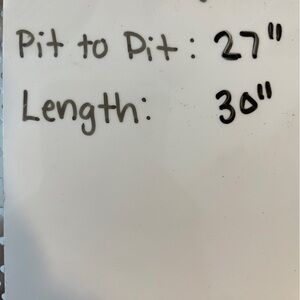 Pit to Pit: 27"
Length: 30"